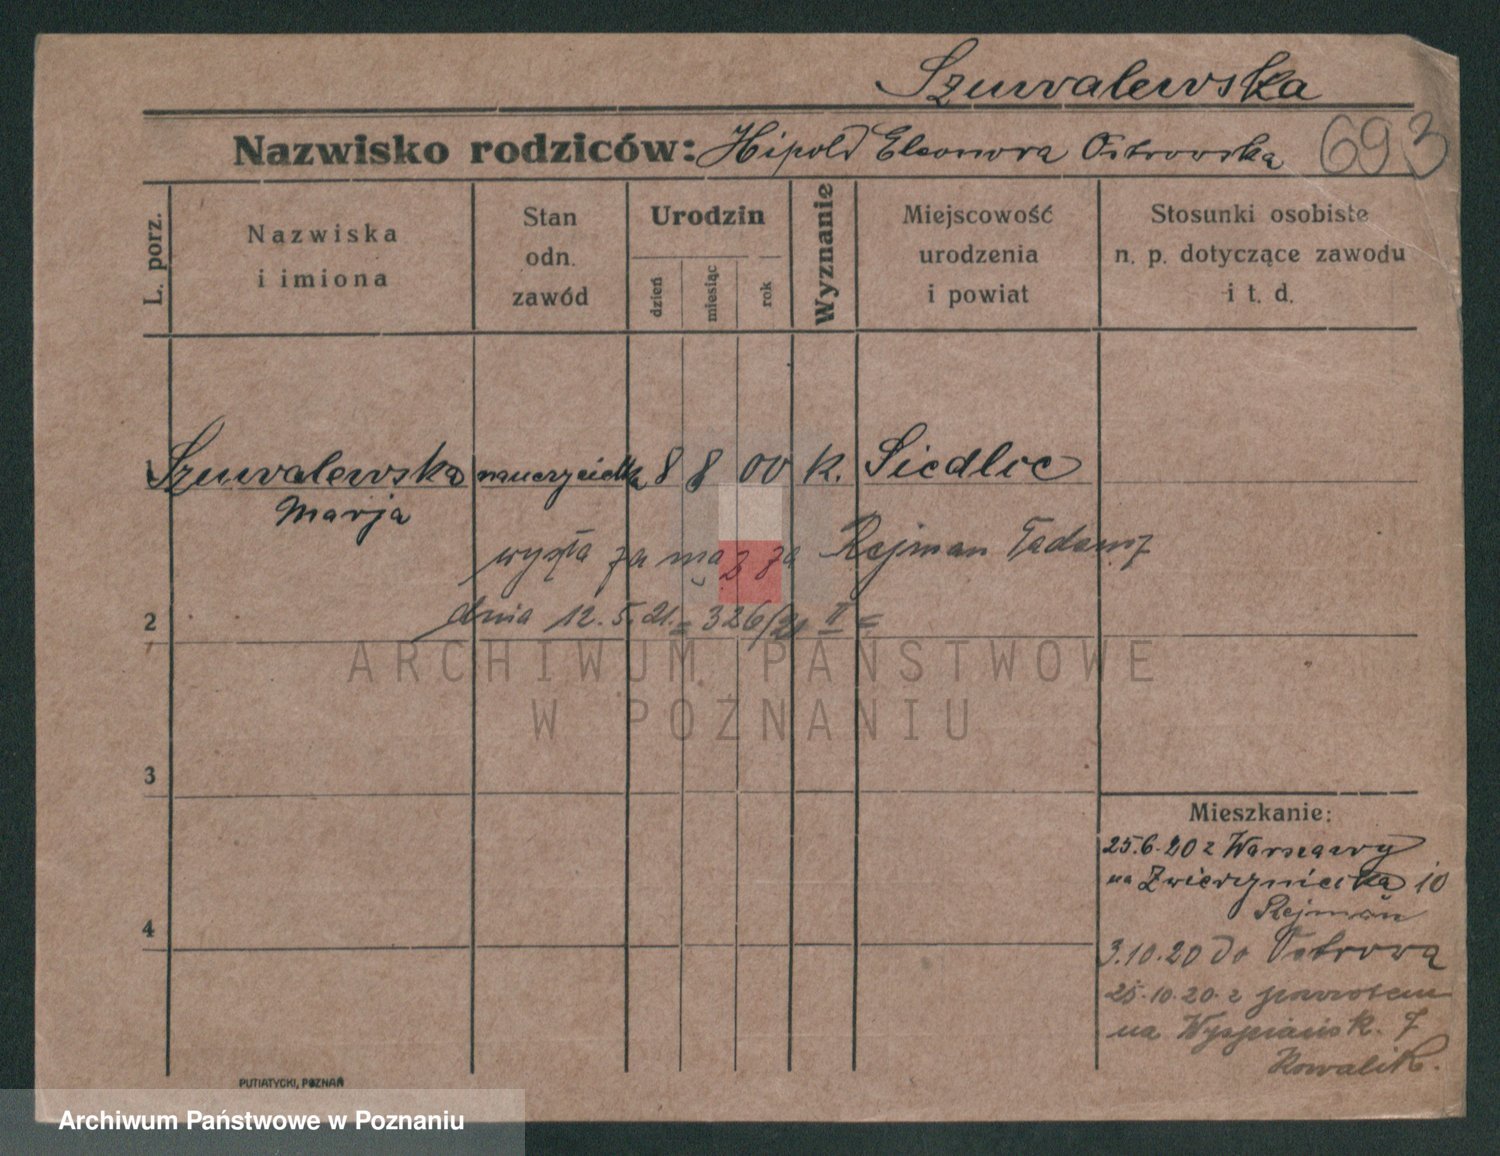 Szuwalewska
Nazwisko rodziców: Hipold Eleonora Ostrowska 693
L. porz.
Nazwiska
i imiona
Stan
odn.
zawód
Urodzin
dzień
miesiąc
rok
Wyznanie
Miejscowość
urodzenia
i powiat
Stosunki osobiste
n. p. dotyczące zawodu
i t. d.
1 Szuwalewska nauczycielka 8 8 00 k. Siedlce
Marja
wyszła za mąż za Rejman Tadeusz
2 dnia 12.5.21. = 326/21 II =
ARCHIWUM PAŃSTWOWE
W POZNANIU
3
Mieszkanie:
25.6.20 z Warszawy
na Zwierzyniecka 10
Rejman
4
3.10.20 do Ostrowa
25.10.20 z powrotem
na Wyspiańsk. 7
Kowalik.
PUTIATYCKI, POZNAŃ
Archiwum Państwowe w Poznaniu